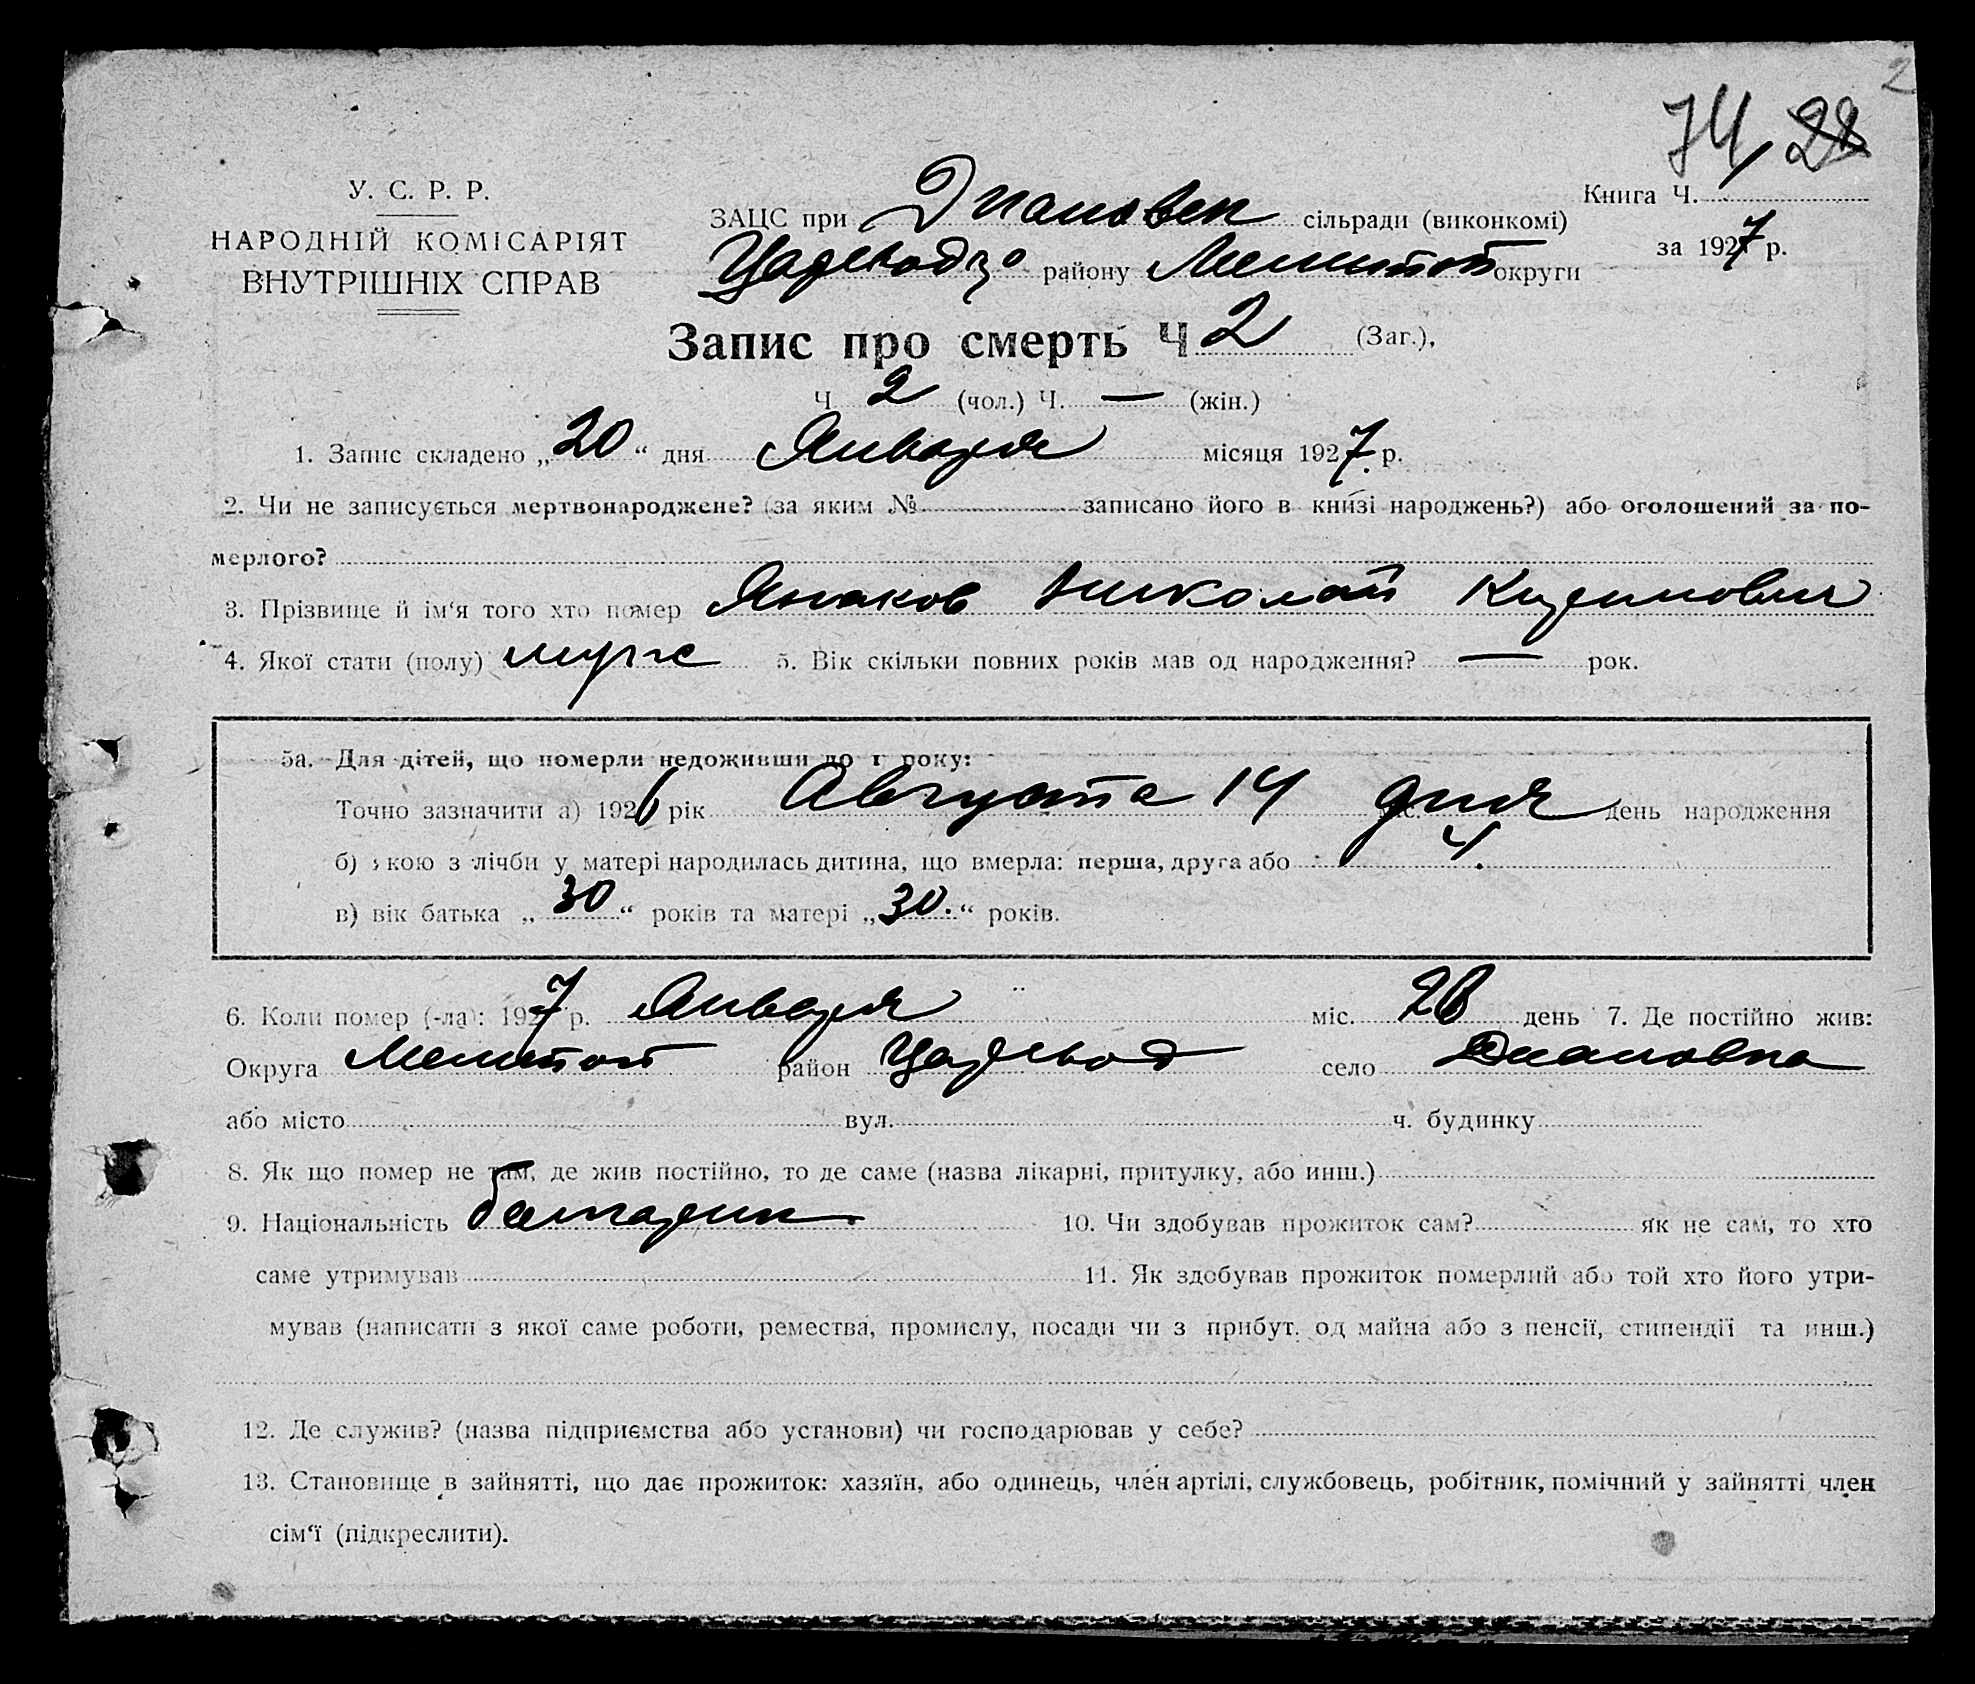 2
74 28
У. С. Р. Р.
НАРОДНІЙ КОМІСАРІЯТ
ВНУТРІШНІХ СПРАВ
Книга Ч.
за 1927 р.
ЗАЦС при Диановск сільради (виконкомі)
району Мелитоп округи
Запис про смерть Ч 2 (Заг.),
Ч 2 (чол.) Ч. — (жін.)
1. Запис складено „20“ дня Января місяця 1927 р.
2. Чи не записується мертвонароджене? (за яким № записано його в книзі народжень?) або оголошений за по-
мерлого?
3. Прізвище й ім‘я того хто помер Янаков Николай
4. Якої стати (полу) муж 5. Вік скільки повних років мав од народження? — рок.
5а. Для дітей, що померли недоживши до 1 року:
Точно зазначити а) 1926 рік Августа 14 дня день народження
б) якою з лічби у матері народилась дитина, що вмерла: перша, друга або 4.
в) вік батька „30“ років та матері „30.“ років.
6. Коли помер (-ла): 1927 р. Января міс. день 7. Де постійно жив:
Округа Мелитоп район Царевод село Диановка
або місто вул. ч. будинку
8. Як що помер не там, де жив постійно, то де саме (назва лікарні, притулку, або инш.)
9. Національність болгарин 10. Чи здобував прожиток сам? як не сам, то хто
саме утримував 11. Як здобував прожиток померлий або той хто його утри-
мував (написати з якої саме роботи, ремества, промислу, посади чи з прибут. од майна або з пенсії, стипендії та инш.)
12. Де служив? (назва підприємства або установи) чи господарював у себе?
13. Становище в зайнятті, що дає прожиток: хазяїн, або одинець, член артілі, службовець, робітник, помічний у зайнятті член
сім‘ї (підкреслити).